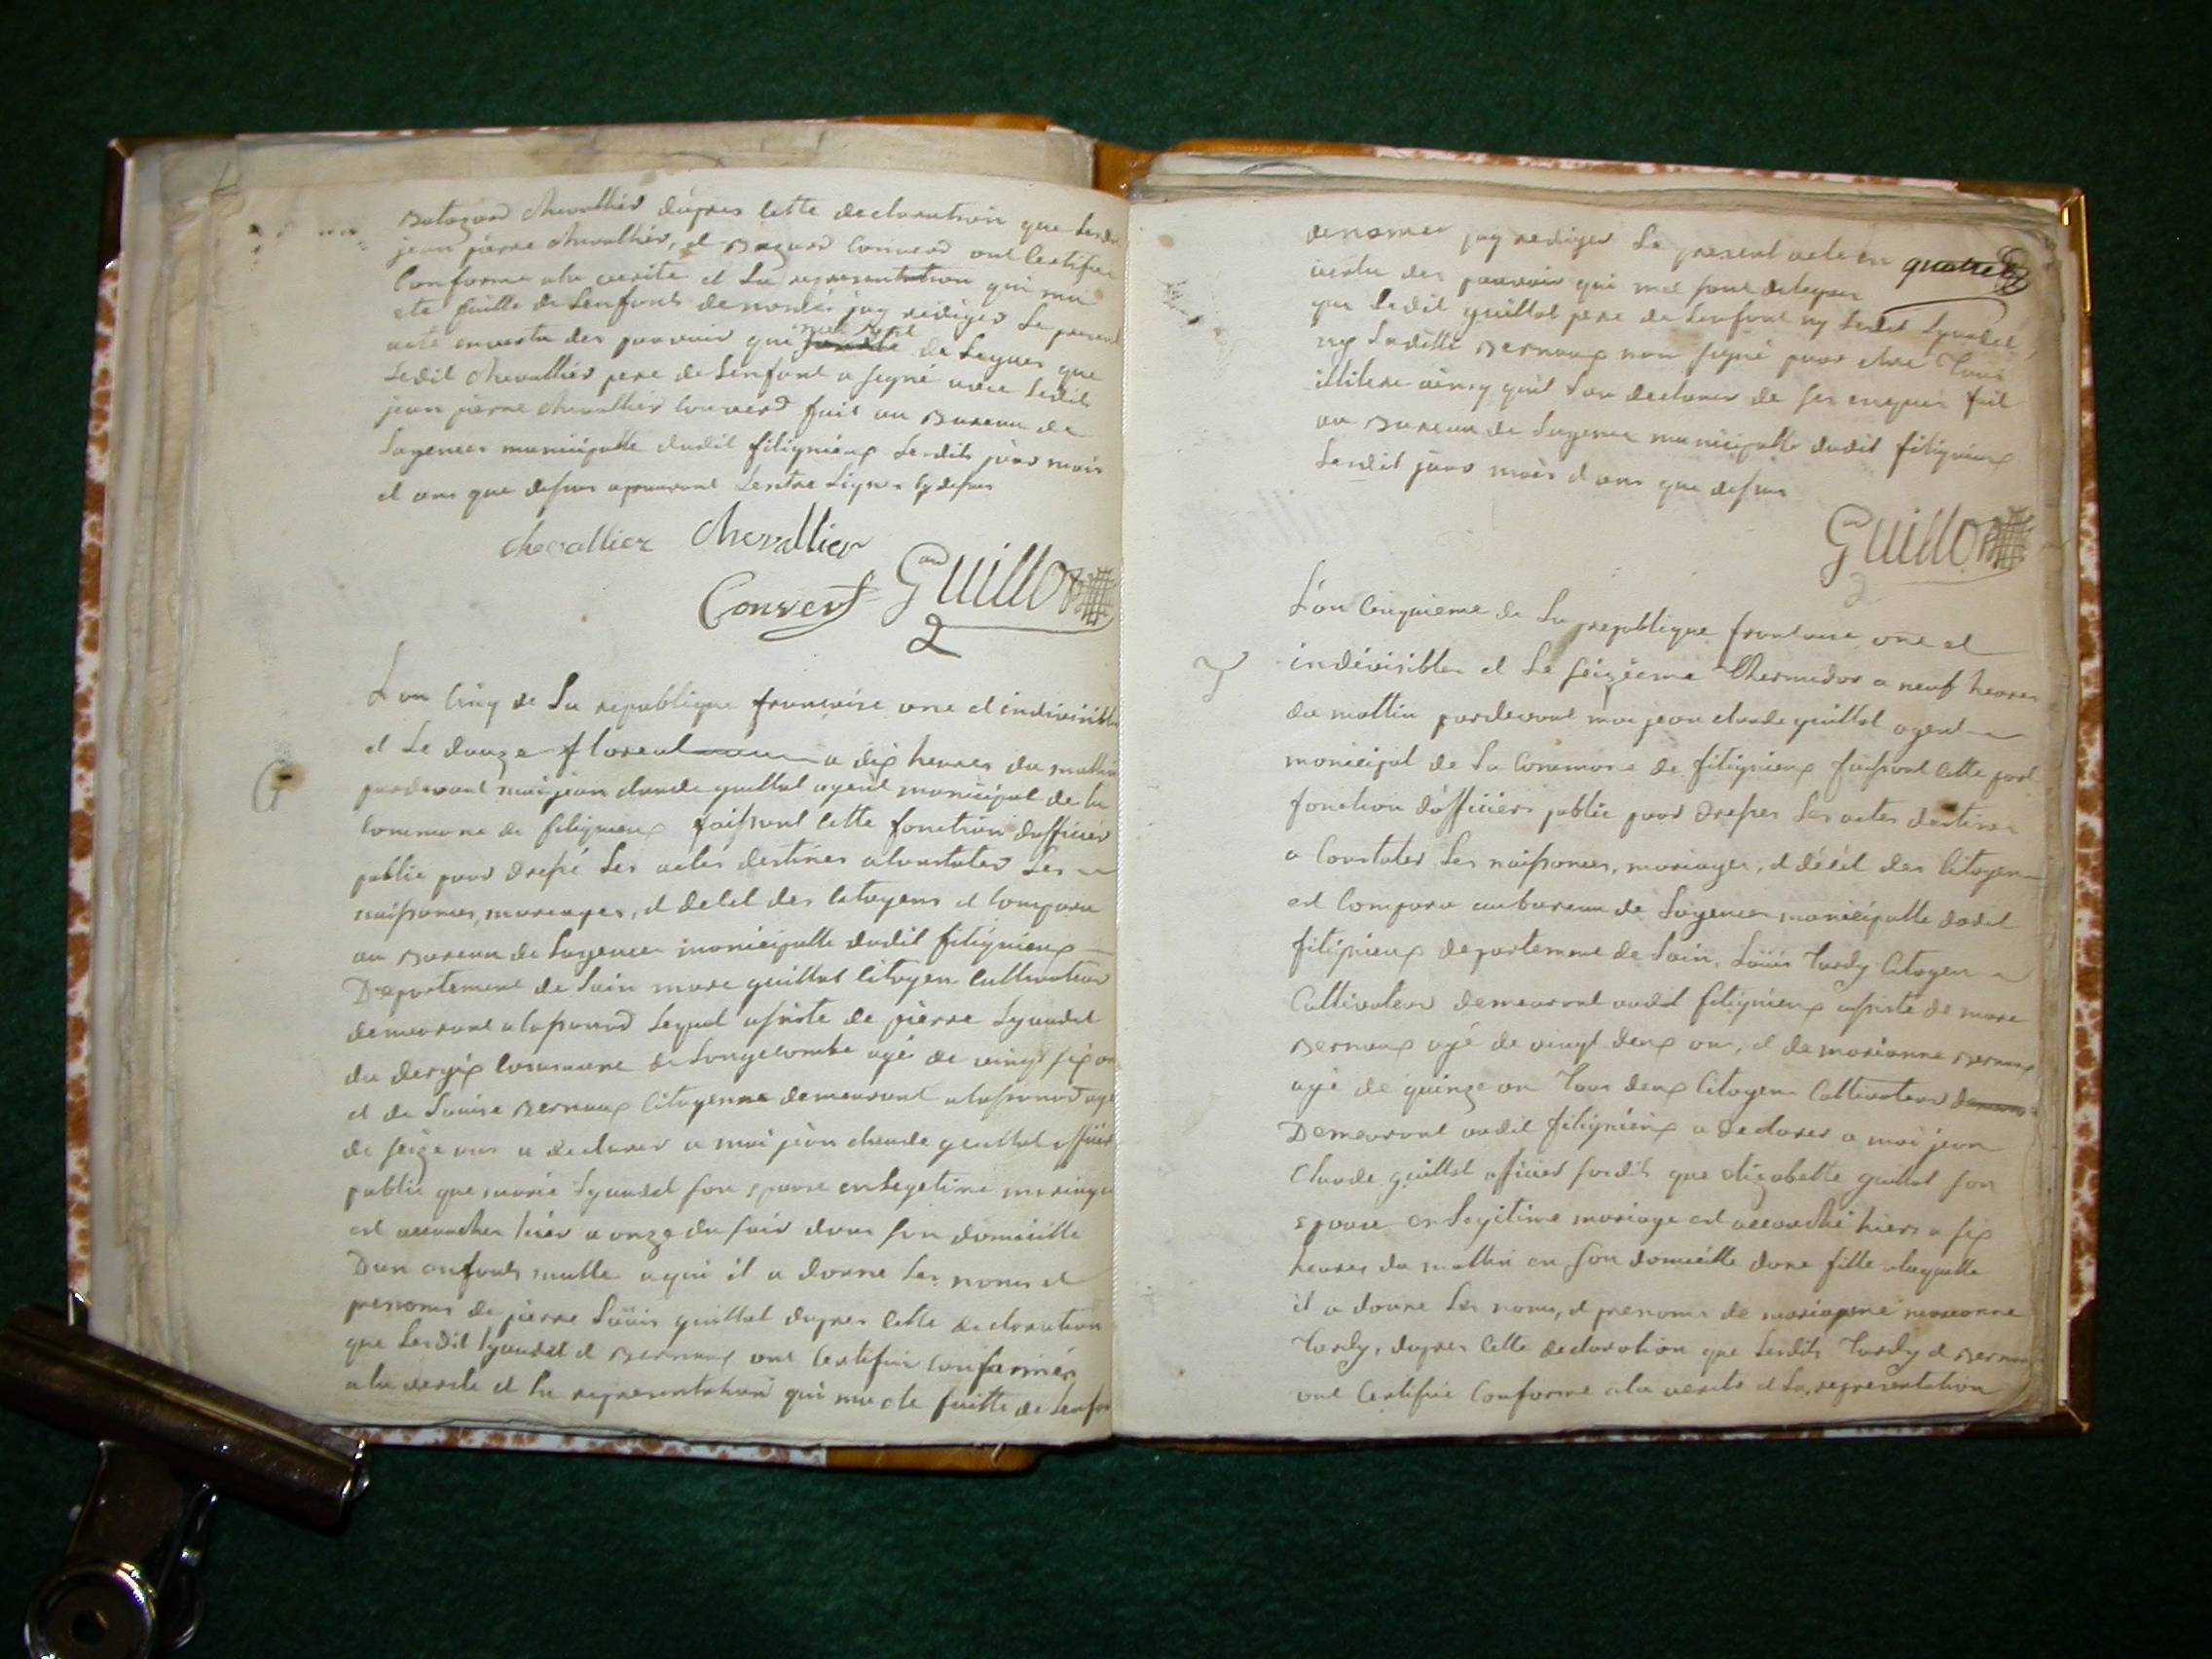 Batazard chevallier dapres cette declaration que lesdit
jean pierre chevallier, et Bazard Convers ont Certifier
Conforme ala verite et la representation qui ma
ete faitte de Lenfant denomé jay rediger Le present
acte en vertu des pouvoir qui me sont de Legues que
Ledit chevallier pere de Lenfant a signé avec Ledit
jean pierre chevallier Convers fait au Bureau de
Lagences municipalle dudit fitignieux Lesdits jour mois
et ans que dessus aprouvant Lentre Lignes cy dessus
chevallier chevallier
Convert Guillot
G
Lan Cinq de La republique francaise une et indivisible
et Le douze floreal a dix heures du mattin
pardevant moi jean claude guillot agent municipal de la
commune de fitignieux faissant cette fonction dofficier
public pour dressé Les actes destines a Constater Les
naissances, mariages, et deces des citoyens et Comparu
au Bureau de Lagences municipalle dudit fitignieux
Departement de Lain marc guillot citoyen Cultivateur
demeurant Lequel assiste de pierre Lyaudet
du dergix commune de Longecombe agé de vingt six an
et de Louise Bernaux citoyenne demeurant agé
de seize ans a declarer a moi jean claude guillot officier
public que marie Lyaudet son epouse en Legetime mariage
est accoucher hier a onze du soir dans son domicille
Dun enfants malle aqui il a donné Les noms et
prenoms de pierre Louis guillot dapres cette declaration
que Lesdit lyaudet et Bernaux ont Certifier Conformer
a la verite et La representation qui ma ete faitte de Lenfan
denomer jay rediger Le present acte en
vertu des pouvoir qui me sont deleguer
que Ledit guillot pere de Lenfant ny Ledit Lyaudet,
ny Ladette Bernaux non signé pour etre Tous
illitere ainsy quil Lon declarer de ses enquis fait
au Bureau de Lagence municipalle dudit fitignieux
Lesdit jour mois et ans que dessus
Guillot
Lan Cinquieme de La republique francaise une et
indivisibles et Le seizieme Thermidor a neuf heures
du mattin pardevant moi jean claude guillot agent
municipal de La Commune de fitignieux faissant cette
fonction dofficiers public pour dresser Les actes destines
a Constater Les naissances, mariages, et décét des Citoyen
est Comparu au bureau de Lagences municipalle dudit
fitignieux departemme de Lain, Louis Tardy Citoyen
Cultivateur demeurant audit fitignieux assisté de marc
Bernaux agé de vingt deux ans, et de marianne Bernaux
agé de quinze an Tous deux Citoyen Cultivateur
Demeurant audit fitignieux a declarer a moi jean
Claude guillot officier susdits que elizabette guillot son
epouse en Legitime mariage est accouché hiers a six
heures du mattin en son domicille dune fille a laquelle
il a donne Les noms, et prenoms de marianne
Tardy, dapres cette declaration que Lesdits Tardy et Bernaux
ont Certifier Conforme ala verite et La representation